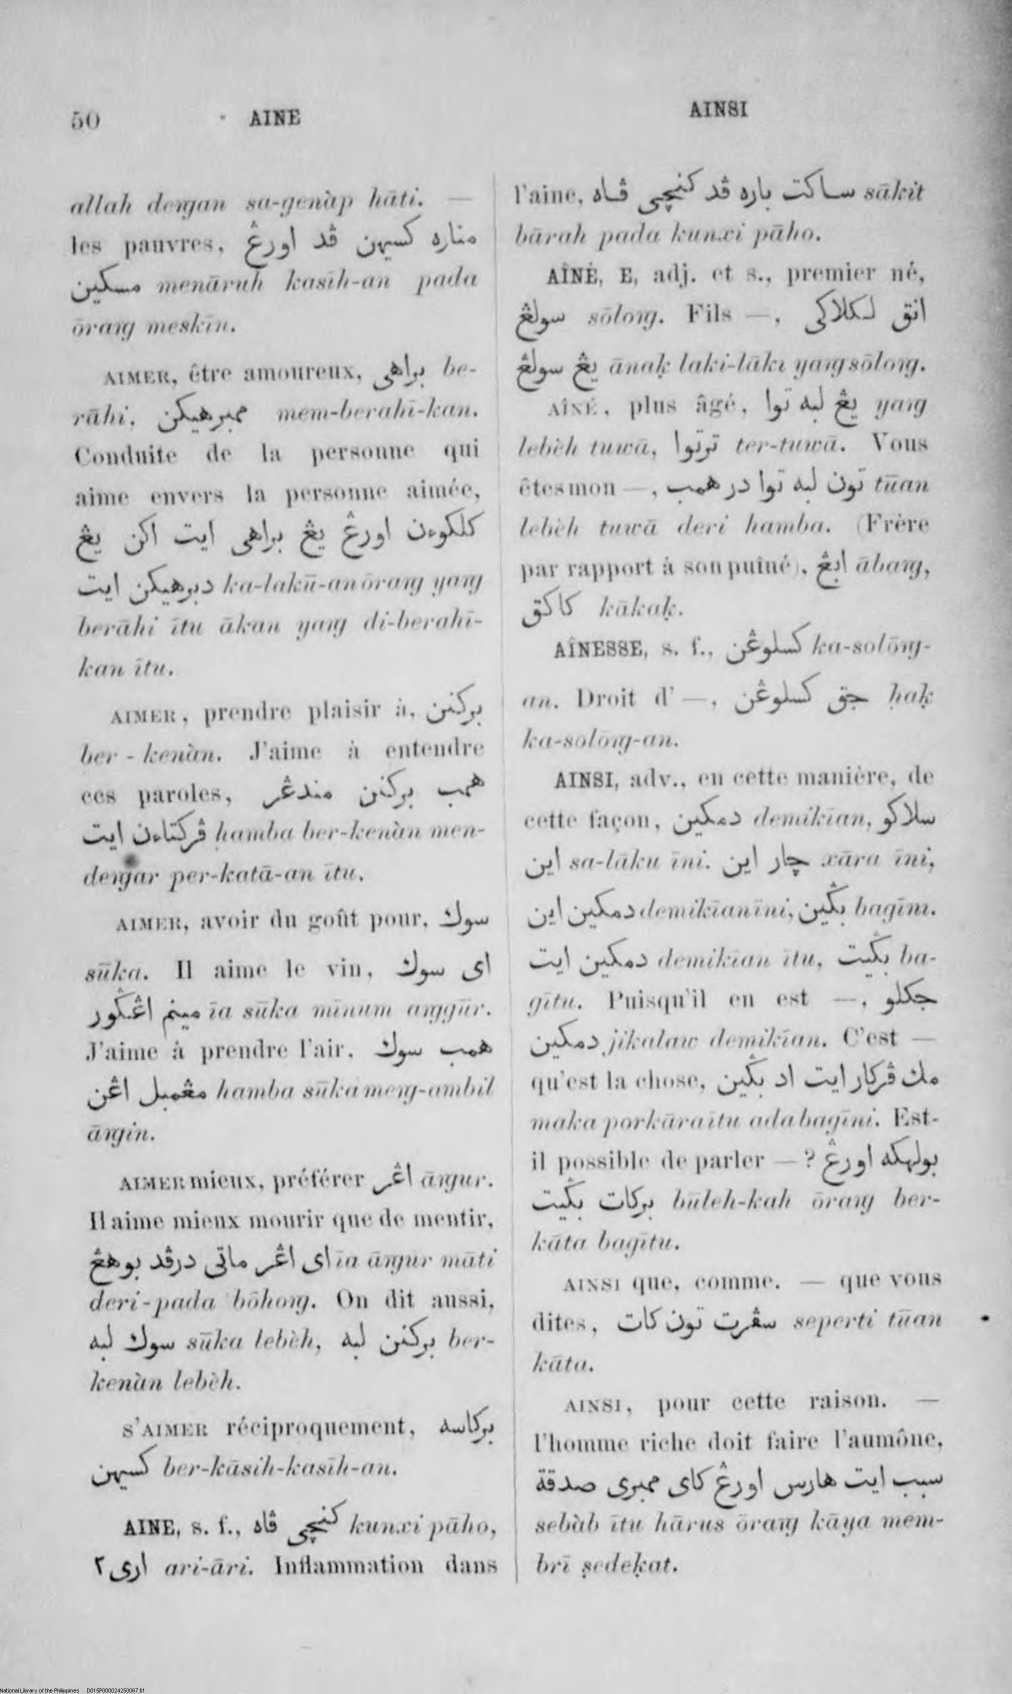 50 AINE
AINSI
allah dengan sa-genàp hāti. —
les pauvres, مناره كسيهن ڤد اورڠ
مسكين menāruh kasīh-an pada
ōrang meskīn.
AIMER, être amoureux, براهي be-
rāhi, ممبرهيكن mem-berahī-kan.
Conduite de la personne qui
aime envers la personne aimée,
كلكوءن اورڠ يڠ براهي ايت اكن يڠ
دبرهيكن ايت ka-lakū-an ōrang yang
berāhi ītu ākan yang di-berahī-
kan ītu.
AIMER, prendre plaisir à, بركنن
ber-kenàn. J'aime à entendre
ces paroles, همب بركنن مندڠر
ڤركتاءن ايت hamba ber-kenàn men-
dengar per-katā-an ītu.
AIMER, avoir du goût pour, سوك
sūka. Il aime le vin, اى سوك
مينم اڠڬور īa sūka mīnum anggūr.
J'aime à prendre l'air, همب سوك
مڠمبل اڠن hamba sūka meng-ambil
āngin.
AIMER mieux, préférer اڠر āngur.
Il aime mieux mourir que de mentir,
اى اڠر ماتي درڤد بوهڠ īa āngur māti
deri-pada bōhong. On dit aussi,
سوك لبه sūka lebèh, بركنن لبه ber-
kenàn lebèh.
S'AIMER réciproquement, بركاسه
كسيهن ber-kāsih-kasīh-an.
AINE, s. f., كنچي ڤاه kunxi pāho,
ارى٢ ari-āri. Inflammation dans
l'aine, ساكت باره ڤد كنچي ڤاه sākit
bārah pada kunxi pāho.
AÎNÉ, E, adj. et s., premier né,
سولڠ sōlong. Fils —, انق لكلاكي
يڠ سولڠ ānaḳ laki-lāki yang sōlong.
AÎNÉ, plus âgé, يڠ لبه توا yang
lebèh tuwā, ترتوا ter-tuwā. Vous
êtes mon —, تون لبه توا در همب tūan
lebèh tuwā deri hamba. (Frère
par rapport à son puîné), ابڠ ābang,
كاكق kākaḳ.
AÎNESSE, s. f., كسلوڠن ka-solōng-
an. Droit d' —, حق كسلوڠن ḥaḳ
ka-solōng-an.
AINSI, adv., en cette manière, de
cette façon, دمكين demikīan, سلاكو
اين sa-lāku īni. چار اين xāra īni,
دمكين اين demikīan īni, بڬين bagīni.
دمكين ايت demikīan ītu, بڬيت ba-
gītu. Puisqu'il en est —, جكلو
دمكين jikalaw demikīan. C'est —
qu'est la chose, مك ڤركار ايت اد بڬين
maka perkāra ītu ada bagīni. Est-
il possible de parler — ? بولهكه اورڠ
بركات بڬيت būleh-kah ōrang ber-
kāta bagītu.
AINSI que, comme. — que vous
dites, سڤرت تون كات seperti tūan
kāta.
AINSI, pour cette raison. —
l'homme riche doit faire l'aumône,
سبب ايت هارس اورڠ كاى ممبرى صدقة
sebàb ītu hārus ōrang kāya mem-
brī ṣedeḳat.
National Library of the Philippines